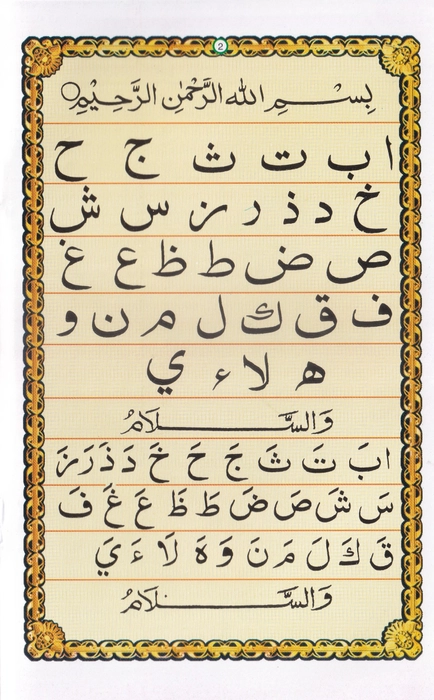 2
بِسْمِ اللهِ الرَّحْمٰنِ الرَّحِيْمِ
ا ب ت ث ج ح
خ د ذ ر ز س ش
ص ض ط ظ ع غ
ف ق ك ل م ن و
ه لا ء ي
وَالسَّلَامُ
ا بَ تَ ثَ جَ حَ خَ دَ ذَ رَ زَ
سَ شَ صَ ضَ طَ ظَ عَ غَ فَ
قَ كَ لَ مَ نَ وَ هَ لَا ءَ يَ
وَالسَّلَامُ